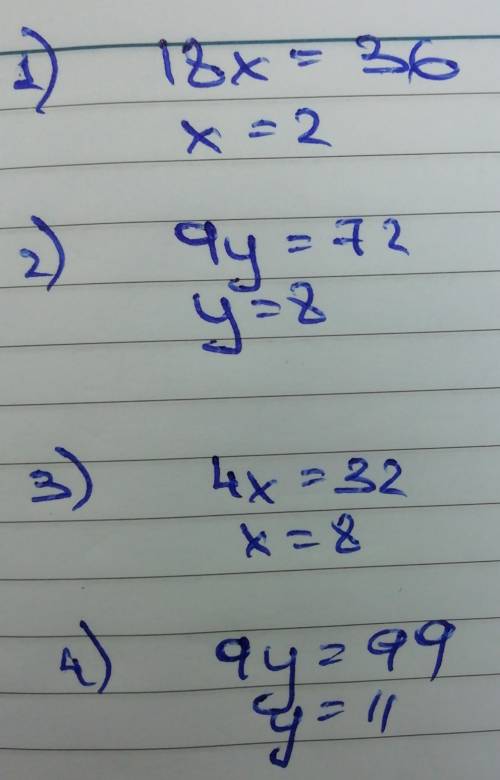 1) 18x = 36
x = 2
2) 9y = 72
y = 8
3) 4x = 32
x = 8
4) 9y = 99
y = 11